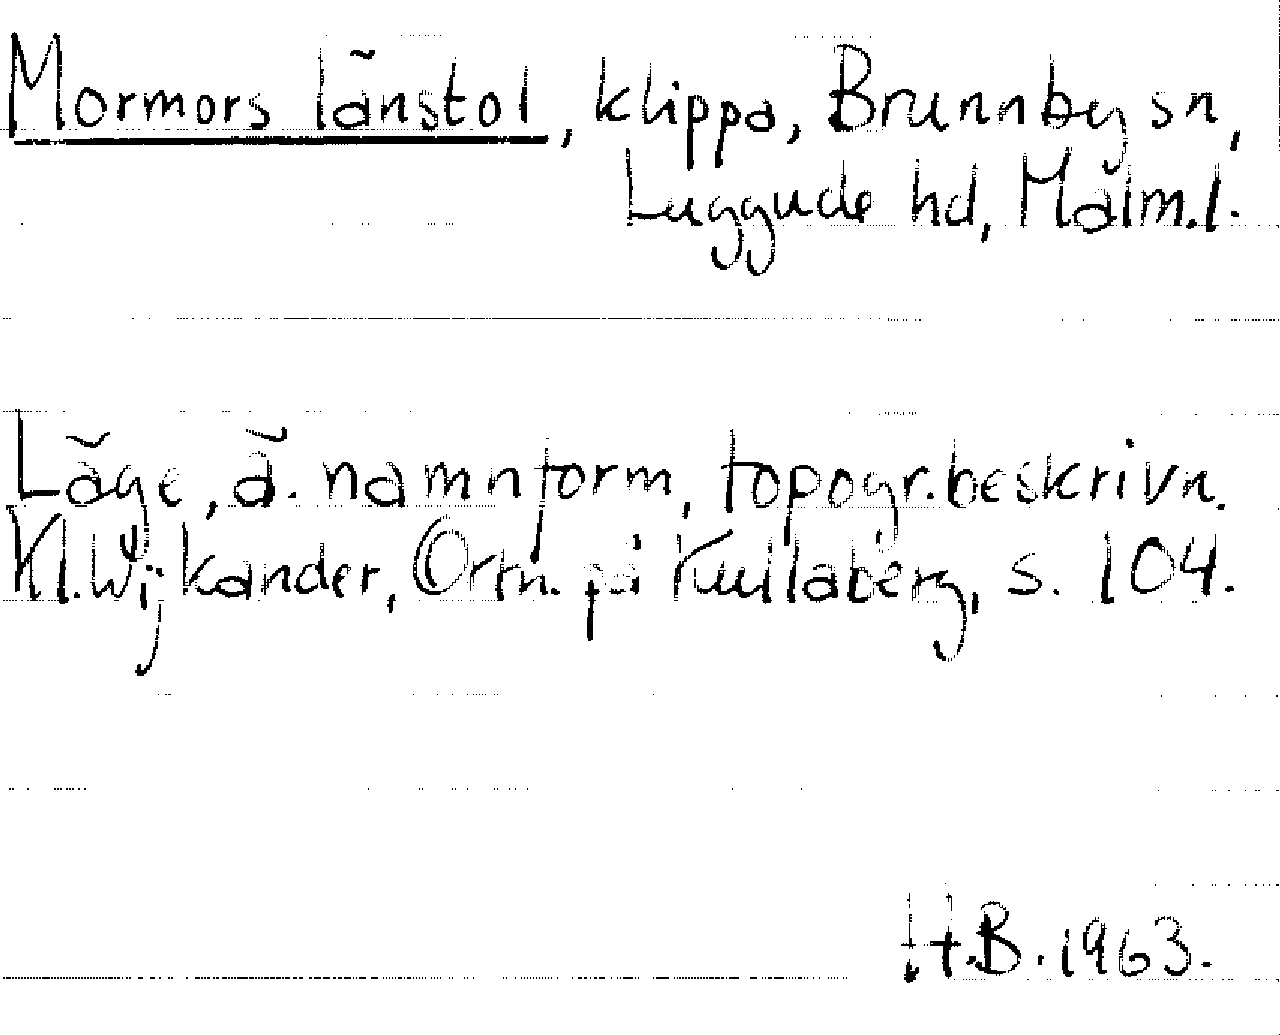 Mormors länstol, klippa, Brunnby sn,
Luggude hd, Malm.l.
Läge, ä. namnform, topogr.beskrivn.
Kl.Wijkander, Ortn. på Kullaberg, s. 104.
H.B. 1963.